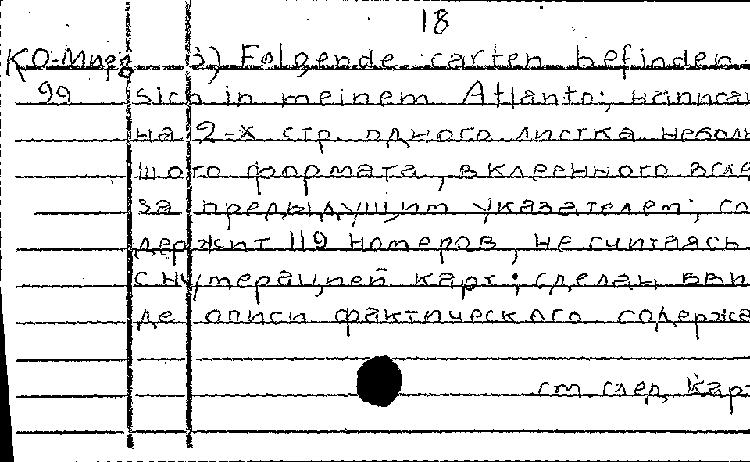 18
КО-Мира 3) Folgende carten befinden
99 sich in meinem Atlanto; написан
на 2-х стр. одного листка неболь
шого формата, вклеенного всле
за предыдущим указателем; со
держит 119 номеров, не считаясь
с нумерацией карт; сделан в ви
де описи фактического содержа
см. след. карт